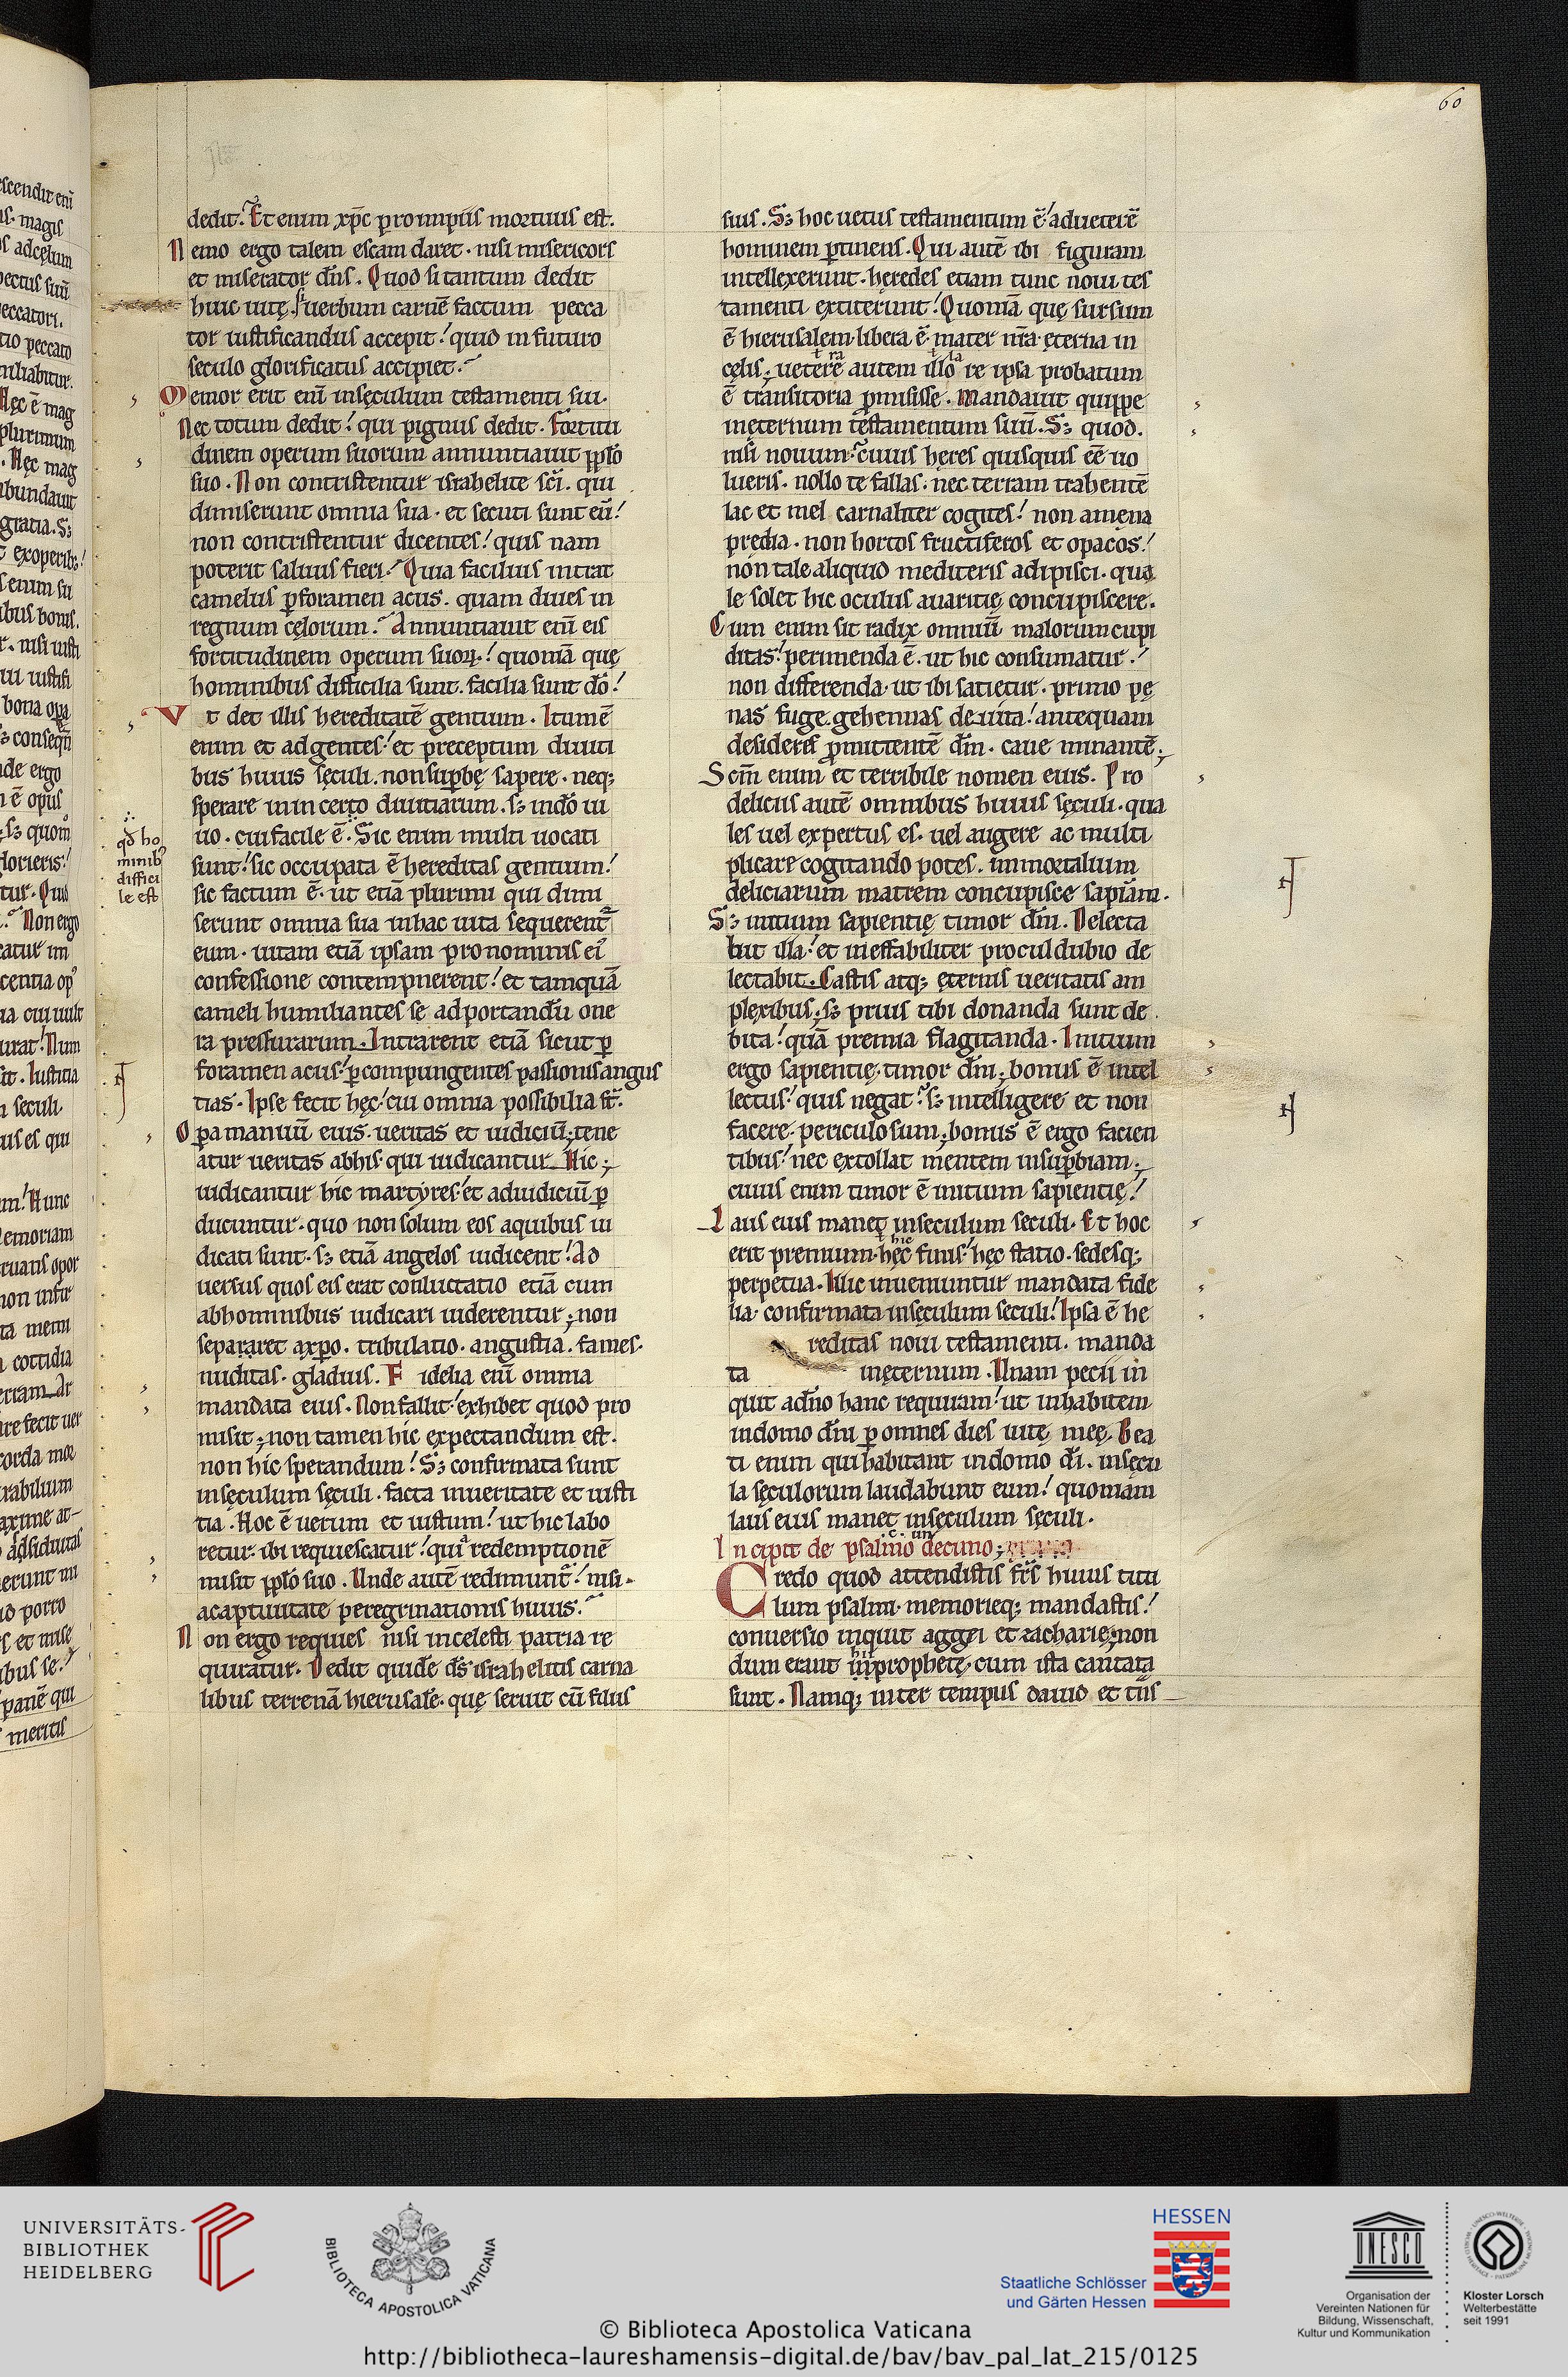 60
dedit. Et enim xp̄c pro impiis mortuus est.
Nemo ergo talem escam daret. nisi misericors
et miserator dn̄s. Quod si tantum dedit
huic uitę. si uerbum carnē factum pecca
tor iustificandus accepit! quid in futuro
seculo glorificatus accipiet.
Memor erit eni̅ insęculum testamenti sui.
Nec totum dedit! qui pignus dedit. Fortitu
dinem operum suorum annuntiauit ꝓplo
suo. Non contristentur israhelite sc̄i. qui
dimiserunt omnia sua. et secuti sunt eū!
non contristentur dicentes! quis nam
poterit saluus fieri. Quia facilius intrat
camelus ꝑforamen acus. quam diues in
regnum cęlorum. Annuntiauit eni̅ eis
fortitudinem operum suoꝝ! quoniā quę
hominibus difficilia sunt. facilia sunt dō!
Vt det illis hereditatē gentium. Itum ē
enim et adgentes! et preceptum diuiti
bus huius sęculi. nonsuꝑbę sapere. neq;
sperare inincerto diuitiarum. sꝫ indō ui
uo. cui facile ē. Sic enim multi uocati
sunt! sic occupata ē hereditas gentium!
sic factum ē. ut etiā plurimi qui dimi
serunt omnia sua inhac uita sequerent᷑
eum. uitam etiā ipsam pro nominis ei᷒
confessione contempnerent! et tamquā
cameli humiliantes se adportandū one
ra pressurarum. Intrarent etiā sicut ꝑ
foramen acus! ꝑcompungentes passionis angus
tias. Ipse fecit hęc! cui omnia possibilia st̄.
Opa manuū eius. ueritas et iudiciū; tene
atur ueritas abhis. qui iudicantur. Hic;
iudicantur hic martyres! et adiudiciū ꝑ
ducuntur. quo non solum eos aquibus iu
dicati sunt. sꝫ etiā angelos iudicent! Ad
uersus quos eis erat conluctatio etiā cum
abhominibus iudicari uiderentur; non
separaret axp̄o. tribulatio. angustia. fames.
nuditas. gladius. Fidelia eni̅ omnia
mandata eius. Non fallit! exhibet quod pro
misit; non tamen hic expectandum est.
non hic sperandum! Sꝫ confirmata sunt
insęculum sęculi. facta inueritate et iusti
tia. Hoc ē uerum et iustum! ut hic labo
retur. ibi requiescatur! quia redemptionē
misit ꝓplo suo. Unde autē redimunt᷑! nisi
acaptiuitate peregrinationis huius.
Non ergo requies nisi incelesti patria re
quiratur. Dedit quidē ds̄ israhelitis carna
libus terrenā hierusalē. quę seruit cū filiis
qd̄ ho
minib᷒
diffici
le est
suis. Sꝫ hoc uetus testamentum ē! adueterē
hominem ꝑtinens. Qui autē ibi figuram
intellexerunt. heredes etiam tunc noui tes
tamenti extiterunt! Quoniā quę sursum
ē hierusalem. libera ē. mater nr̄a ęterna in
cęlis; uetere autem illo re ipsa probatum
ł ra ł la
ē transitoria ꝓmisisse. Mandauit quippe
inęternum testamentum suū. Sꝫ quod.
nisi nouum. cuius hęres quisquis eē uo
lueris. nollo te fallas. nec terram trahentē
lac et mel carnaliter cogites! non amęna
predia. non hortos fructiferos et opacos!
non tale aliquid mediteris adipisci. qua
le solet hic oculus auaritię concupiscere.
Cum enim sit radix omniū malorum cupi
ditas! perimenda ē. ut hic consumatur!
non differenda. ut ibi satietur. primo pę
nas fuge. gehennas deuita! antequam
desideres ꝓmittentē dm̄. caue minantē;
Scm̄ enim et terribile nomen eius. Pro
deliciis autē omnibus huius sęculi. qua
les uel expertus es. uel augere ac multi
plicare cogitando potes. immortalium
deliciarum matrem concupisce sapiam.
Sꝫ initium sapientię timor dn̄i. Delecta
bit illa! et ineffabiliter proculdubio de
lectabit. Castis atq; ęternis ueritatis am
plexibus; sꝫ prius tibi donanda sunt de
bita! quā premia flagitanda. Initium
ergo sapientię. timor dn̄i; bonus ē intel
lectus! quis negat? sꝫ intelligere et non
facere. periculosum; bonus ē ergo facien
tibus! nec extollat mentem insuꝑbiam;
cuius enim timor ē initium sapientię!
Laus eius manet inseculum seculi. Et hoc
erit premium. hęc finis! hęc statio. sedesq;
ł hic
perpetua. Illic inueniuntur mandata fide
lia. confirmata insęculum seculi! Ipsa ē he
reditas noui testamenti. manda
ta inęternum. Unam pecii in
quit adn̄o hanc requiram! ut inhabitem
indomo dn̄i ꝑ omnes dies uitę meę. Bea
ti enim qui habitant indomo dn̄i. insęcu
la sęculorum laudabunt eum! quoniam
laus eius manet insęculum sęculi.
.c. un
Incipit de psalmo decimo;
Credo quod attendistis frs̄ huius titu
lum psalmi. memorieq; mandastis!
conuersio inquit aggęi et zacharię; non
dum erant hii prophetę. cum ista cantata
sunt. Namq; inter tempus dauid et tn̄s
UNIVERSITÄTS-
BIBLIOTHEK
HEIDELBERG
BIBLIOTECA APOSTOLICA VATICANA
HESSEN
Staatliche Schlösser
und Gärten Hessen
UNESCO
Organisation der
Vereinten Nationen für
Bildung, Wissenschaft,
Kultur und Kommunikation
Kloster Lorsch
Welterbestätte
seit 1991
© Biblioteca Apostolica Vaticana
http://bibliotheca-laureshamensis-digital.de/bav/bav_pal_lat_215/0125